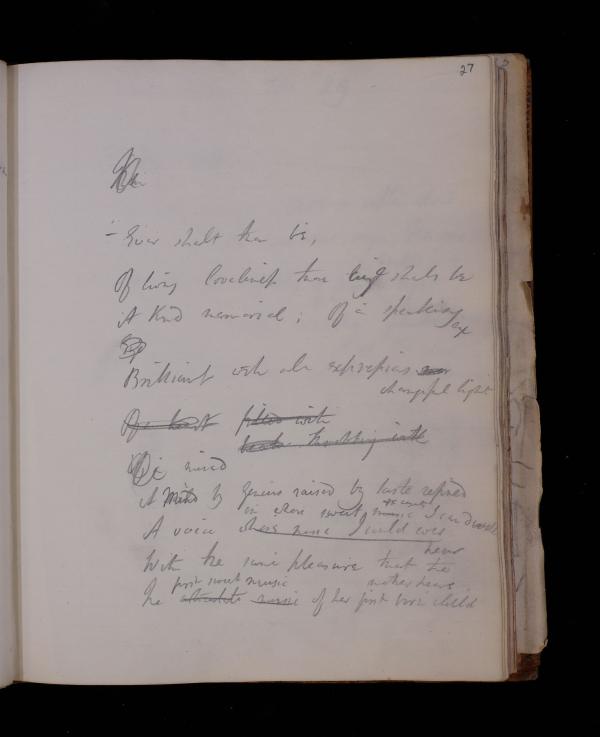 27
Ever shalt thou be,
Of living loveliness thou shalt be
A kind memorial; of a speaking
eye
Brilliant with all expressions
changeful light
Of heart filled with
throbbing with
mind
A mind by genius raised by taste refined
in whose sweet music I could
A voice whose music I could ever
hear
With the same pleasure that the
first sweet music mother hears
The music of her first born child